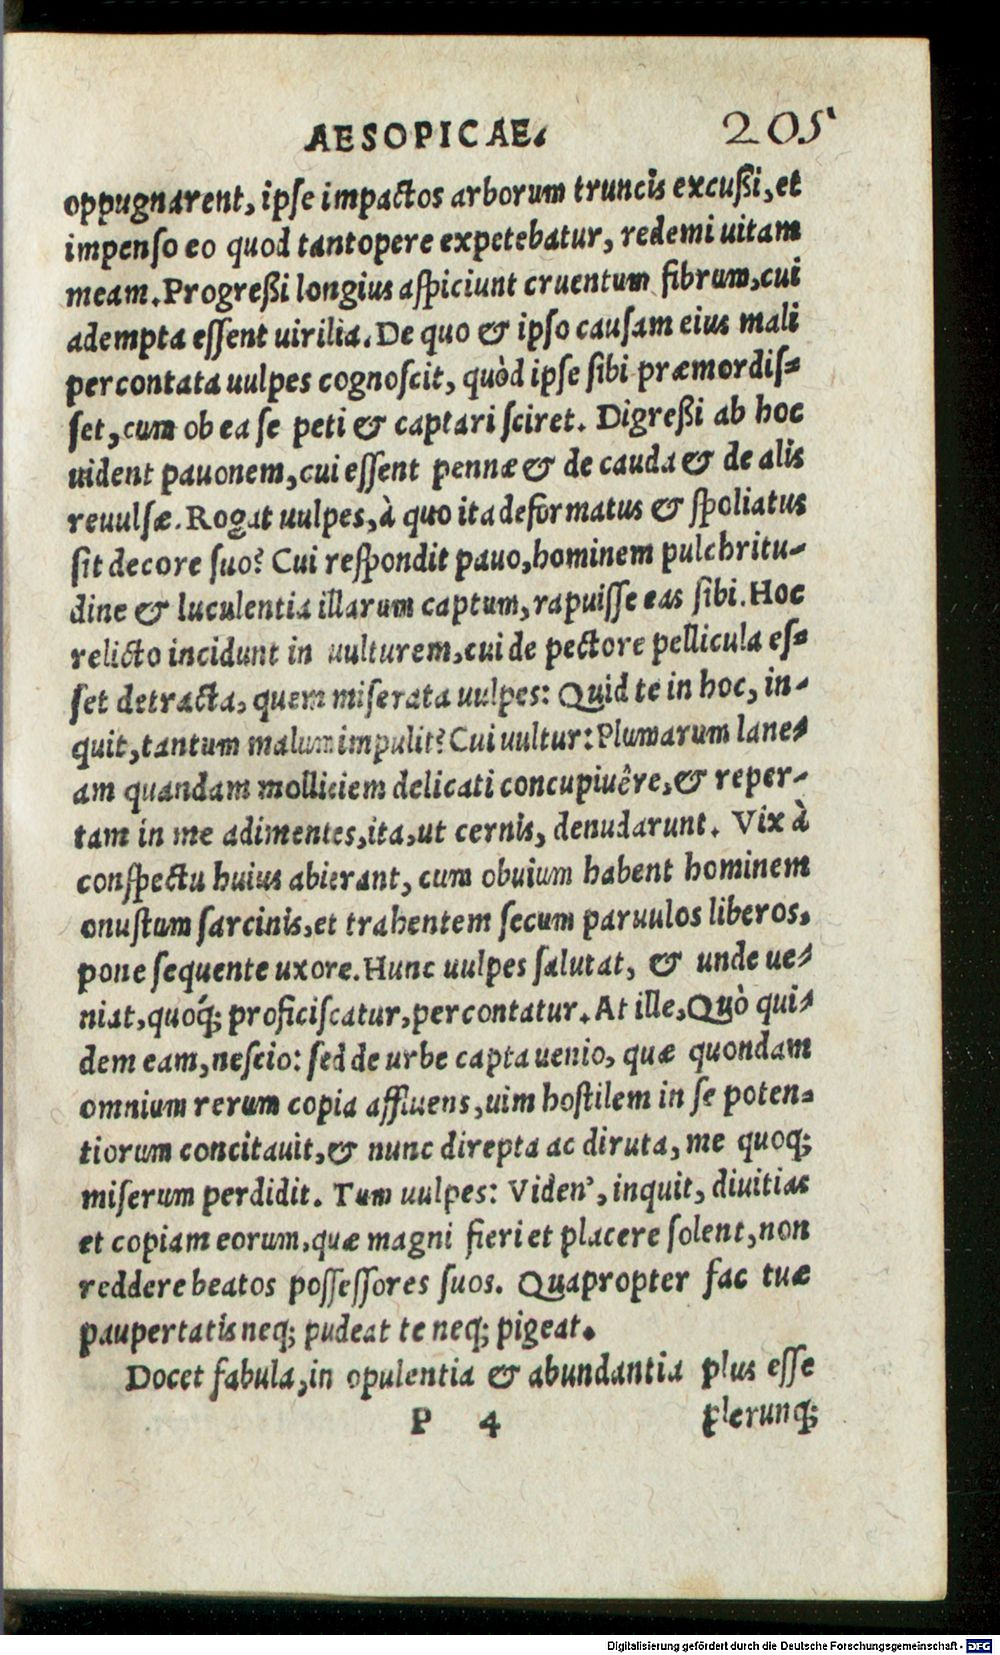 AESOPICAE. 205
oppugnarent, ipſe impactos arborum truncis excußi, et
impenſo eo quod tantopere expetebatur, redemi uitam
meam. Progreßi longius aſpiciunt cruentum fibrum, cui
adempta eſſent uirilia. De quo & ipſo cauſam eius mali
percontata uulpes cognoſcit, quòd ipſe ſibi præmordiſ=
ſet, cum ob ea ſe peti & captari ſciret. Digreßi ab hoc
uident pauonem, cui eſſent pennæ & de cauda & de alis
reuulſæ. Rogat uulpes, à quo ita deformatus & ſpoliatus
ſit decore ſuo? Cui reſpondit pauo, hominem pulchritu-
dine & luculentia illarum captum, rapuiſſe eas ſibi. Hoc
relicto incidunt in uulturem, cui de pectore pellicula eſ=
ſet detracta, quem miſerata uulpes: Quid te in hoc, in-
quit, tantum malum impulit? Cui uultur: Plumarum lane-
am quandam molliciem delicati concupiuêre, & reper-
tam in me adimentes, ita, ut cernis, denudarunt. Vix à
conſpectu huius abierant, cum obuium habent hominem
onuſtum ſarcinis, et trahentem ſecum paruulos liberos,
pone ſequente uxore. Hunc uulpes ſalutat, & unde ue-
niat, quoq́; proficiſcatur, percontatur. At ille, Quò qui-
dem eam, neſcio: ſed de urbe capta uenio, quæ quondam
omnium rerum copia affluens, uim hoſtilem in ſe poten=
tiorum concitauit, & nunc direpta ac diruta, me quoq;
miſerum perdidit. Tum uulpes: Viden', inquit, diuitias
et copiam eorum, quæ magni fieri et placere ſolent, non
reddere beatos poſſeſſores ſuos. Quapropter fac tuæ
paupertatis neq; pudeat te neq; pigeat.
Docet fabula, in opulentia & abundantia plus eſſe
P 4 plerunq;
Digitalisierung gefördert durch die Deutsche Forschungsgemeinschaft - DFG